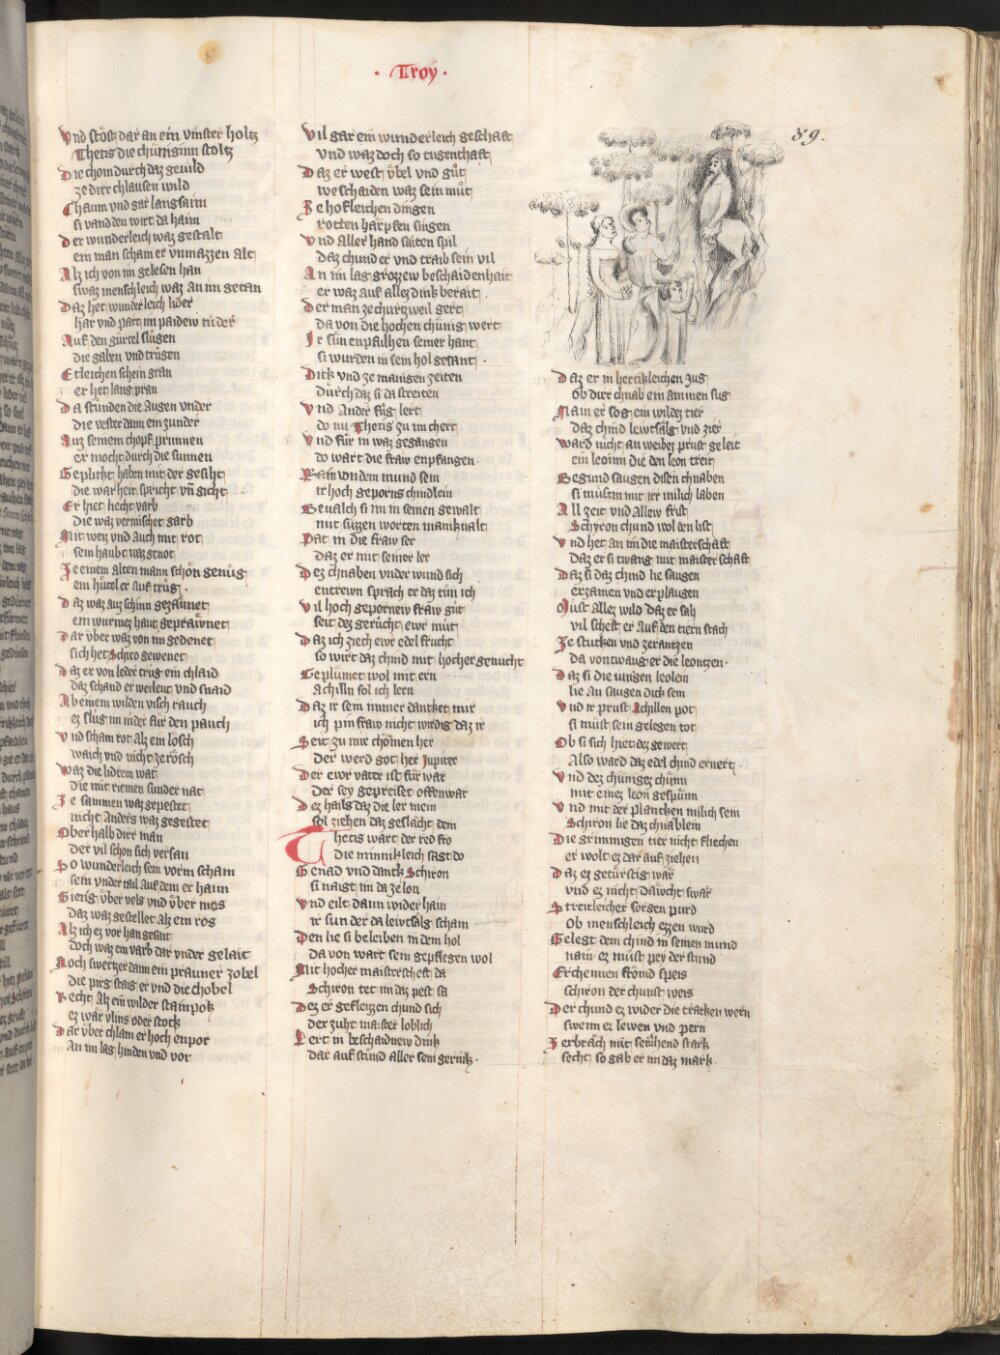 · Troy ·
89.
Vnd stosz dar an ein vinster holtz
Thetis die chuniginn stoltz
Die chom durch daz gevild
ze dirr chlausen wild
Chaum vnd gar langsam
si vand den wirt da haim
Der wunderleich waz gestalt
ein man scham er vnmazzen alt
Alz ich von im gelesen han
swaz menschleich waz an im getan
Daz het wunderleich lider
har vnd part im paidew nider
Auf den gürtel slügen
die gaben vnd trügen
Etleichen schein gran
er het lang pran
Da stunden die augen vnder
die vester dann ein zunder
Auz seinem chopf prunnen
er mocht durch die sunnen
Geplikt haben mit der gesiht
die warheit spricht vn sicht
Er hiet hecht varb
die waz vermischet garb
Mit weiz vnd auch mit rot
sein haubt waz genot
Je einem alten mann schön genüg
ein hütel er auf trüg ·
Daz waz auz schinn gezaunet
ein wurmez haut gepräwnet
Dar vber waz von im gedenet
sich het Schiro gewenet
Daz er von leder trug ein chlaid
daz schand er weilent vnd snaid
Ab einem wilden visch rauch
ez slug im nider für den pauch
Vnd scham rot alz ein lösch
waich vnd nicht zerösch
Waz die lidrein wat
die mit riemen sunder nat
Ze samen waz gepestet
nicht anders waz gegestet
Oberhalb dirr man
der vil schon sich versan
So wunderleich sein vorm scham
sein vnder tail auf dem er haim
Gieng vber vels vnd vber mos
daz waz gestellet alz ein ros
Alz ich ez vor han gesait
doch waz ein varb dar vnder gelait
Noch swertzer dann ein prauner zobel
die perg staig er vnd die chobel
Recht alz ein wilder stainpok
ez wär vlins oder stok
Dar vber chlam er hoch enpor
An im lag hinden vnd vor
Vil gar ein wunderleich geschaft
vnd waz doch so tugenthaft
Daz er west vbel vnd güt
we schaiden waz sein müt
Ze hofleichen dingen
rotten harpfen singen
Vnd aller hand saiten spil
daz chund er vnd traib sein vil
An im lag grozzew beschaidenhait
er waz auf allez dink berait ·
Der man ze churtzweil gert
da von die hochen chünig wert
Ir sün enpfulhen seiner hant
si wurden in sein hol gesant ·
Dick vnd ze manigen zeiten
durch daz si da streiten
Vnd ander füg lert
do nu Thetis zu im chert
Vnd für in waz gegangen
do wart die fraw enpfangen
Rain von dem mund sein
ir hoch geporns chindlein
Bevalch si im in seinen gewalt
mit süzzen worten manikvalt
Pat in die fraw ser
daz er mit seiner ler
Dez chnaben vnder wund sich
entrewn sprach er daz tün ich
Vil hoch gepornew fraw güt
seit dez gerücht ewr müt
Daz ich ziech ewr edel frucht
so wirt daz chind mit hocher genucht
Geplümet wol mit ern
Achilln sol ich lern
Daz ir sein immer dancket mir
ich pin fraw nicht wirdig daz ir
Seit zu mir chomen her
der werd got her Jupiter
Der ewr vater ist für war
der sey gepreiset offenwar
Dez hails daz die ler mein
sol ziehen daz geslächt dein
Thetis wart der red fro
die minnikleich sagt do
Genad vnd danck Schiron
si naigt im da ze lon
Vnd eilt dann wider haim
ir sun der da lewtsälg scham
Den lie si beleiben in dem hol
da von wart sein gepflegen wol
Mit hocher maisterscheft da
Schiron tet im daz pest sa
Dez er geflezzen chund sich
der zuht maister loblich
Lert in beschaidnew dink
dar auf stund aller sein gerink ·
Daz er in hertikleichen zug
ob dirr chnab ein ammen sug
Nain er sog ein wildez tier
daz chind lewtsälg vnd zier
Ward nicht an weibez prust geleit
ein leoinn die den leon treit
Begund saugen disen chnaben
si müst in mit irr milich laben
All zeit vnd allew frist
Schyron chund wol den list
Vnd het an im die maisterschaft
daz er si twang mit maisterschaft
Daz si daz chind lie saugen
erzamen vnd erplaugen
Müst allez wild daz er sah
vil scheft er auf den tiern stach
Ze stucken vnd zerantzen
da von twang er die leontzen ·
Daz si die iungen leolein
lie an saugen dick sein
Vnd ir prust Achillen pot
si müst sein gelegen tot
Ob si sich hiet dez gewert
Also ward daz edel chind ernert ·
Vnd dez chünigez chünn
mit einez leon gespünn
Vnd mit der plancken milich sein
Schiron lie daz chnäblein
Die grimmigen tier nicht fliechen
er wolt ez dar auf ziehen
Daz ez getürstig wär
vnd ez nicht daücht swär
Streitleicher sorgen purd
Ob menschleich ezzen wurd
Gelegt dem chind in seinen mund
nain ez müst pey der stund
Erchennen frömd speis
schiron der chunst weis
Der chund ez wider die tracken wern
swein ez lewen vnd pern
Zerbräch mit seinhend stark
secht so gab er im daz mark ·